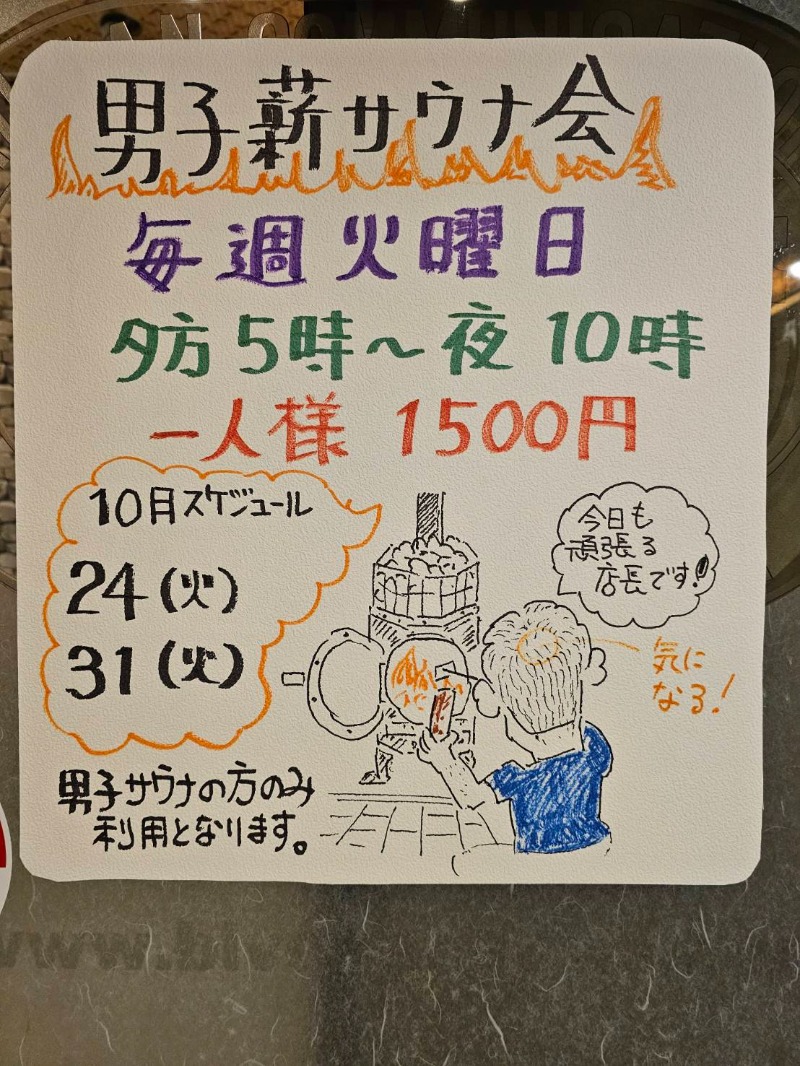 男子薪サウナ会
毎週火曜日
夕方5時～夜10時
一人様 1500円
10日スケジュール
24(火)
31(火)
今日も
頑張る
店長です!
気に
なる!
男子サウナの方のみ
利用となります。